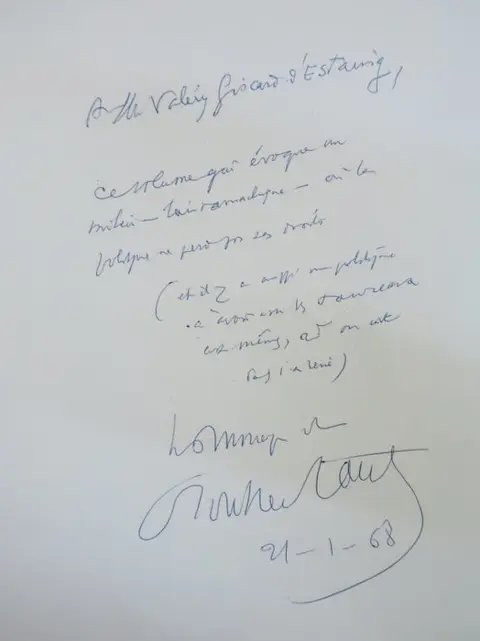 A M. Valéry Giscard d'Estaing,
Ce volume qui évoque un
milieu – tauromachique – où la
politique ne perd pas ses droits
(et il y a aussi une politique
à avoir avec les taureaux
eux-mêmes, quand on est
dans l'arène)
hommage de
21 – 1 – 68